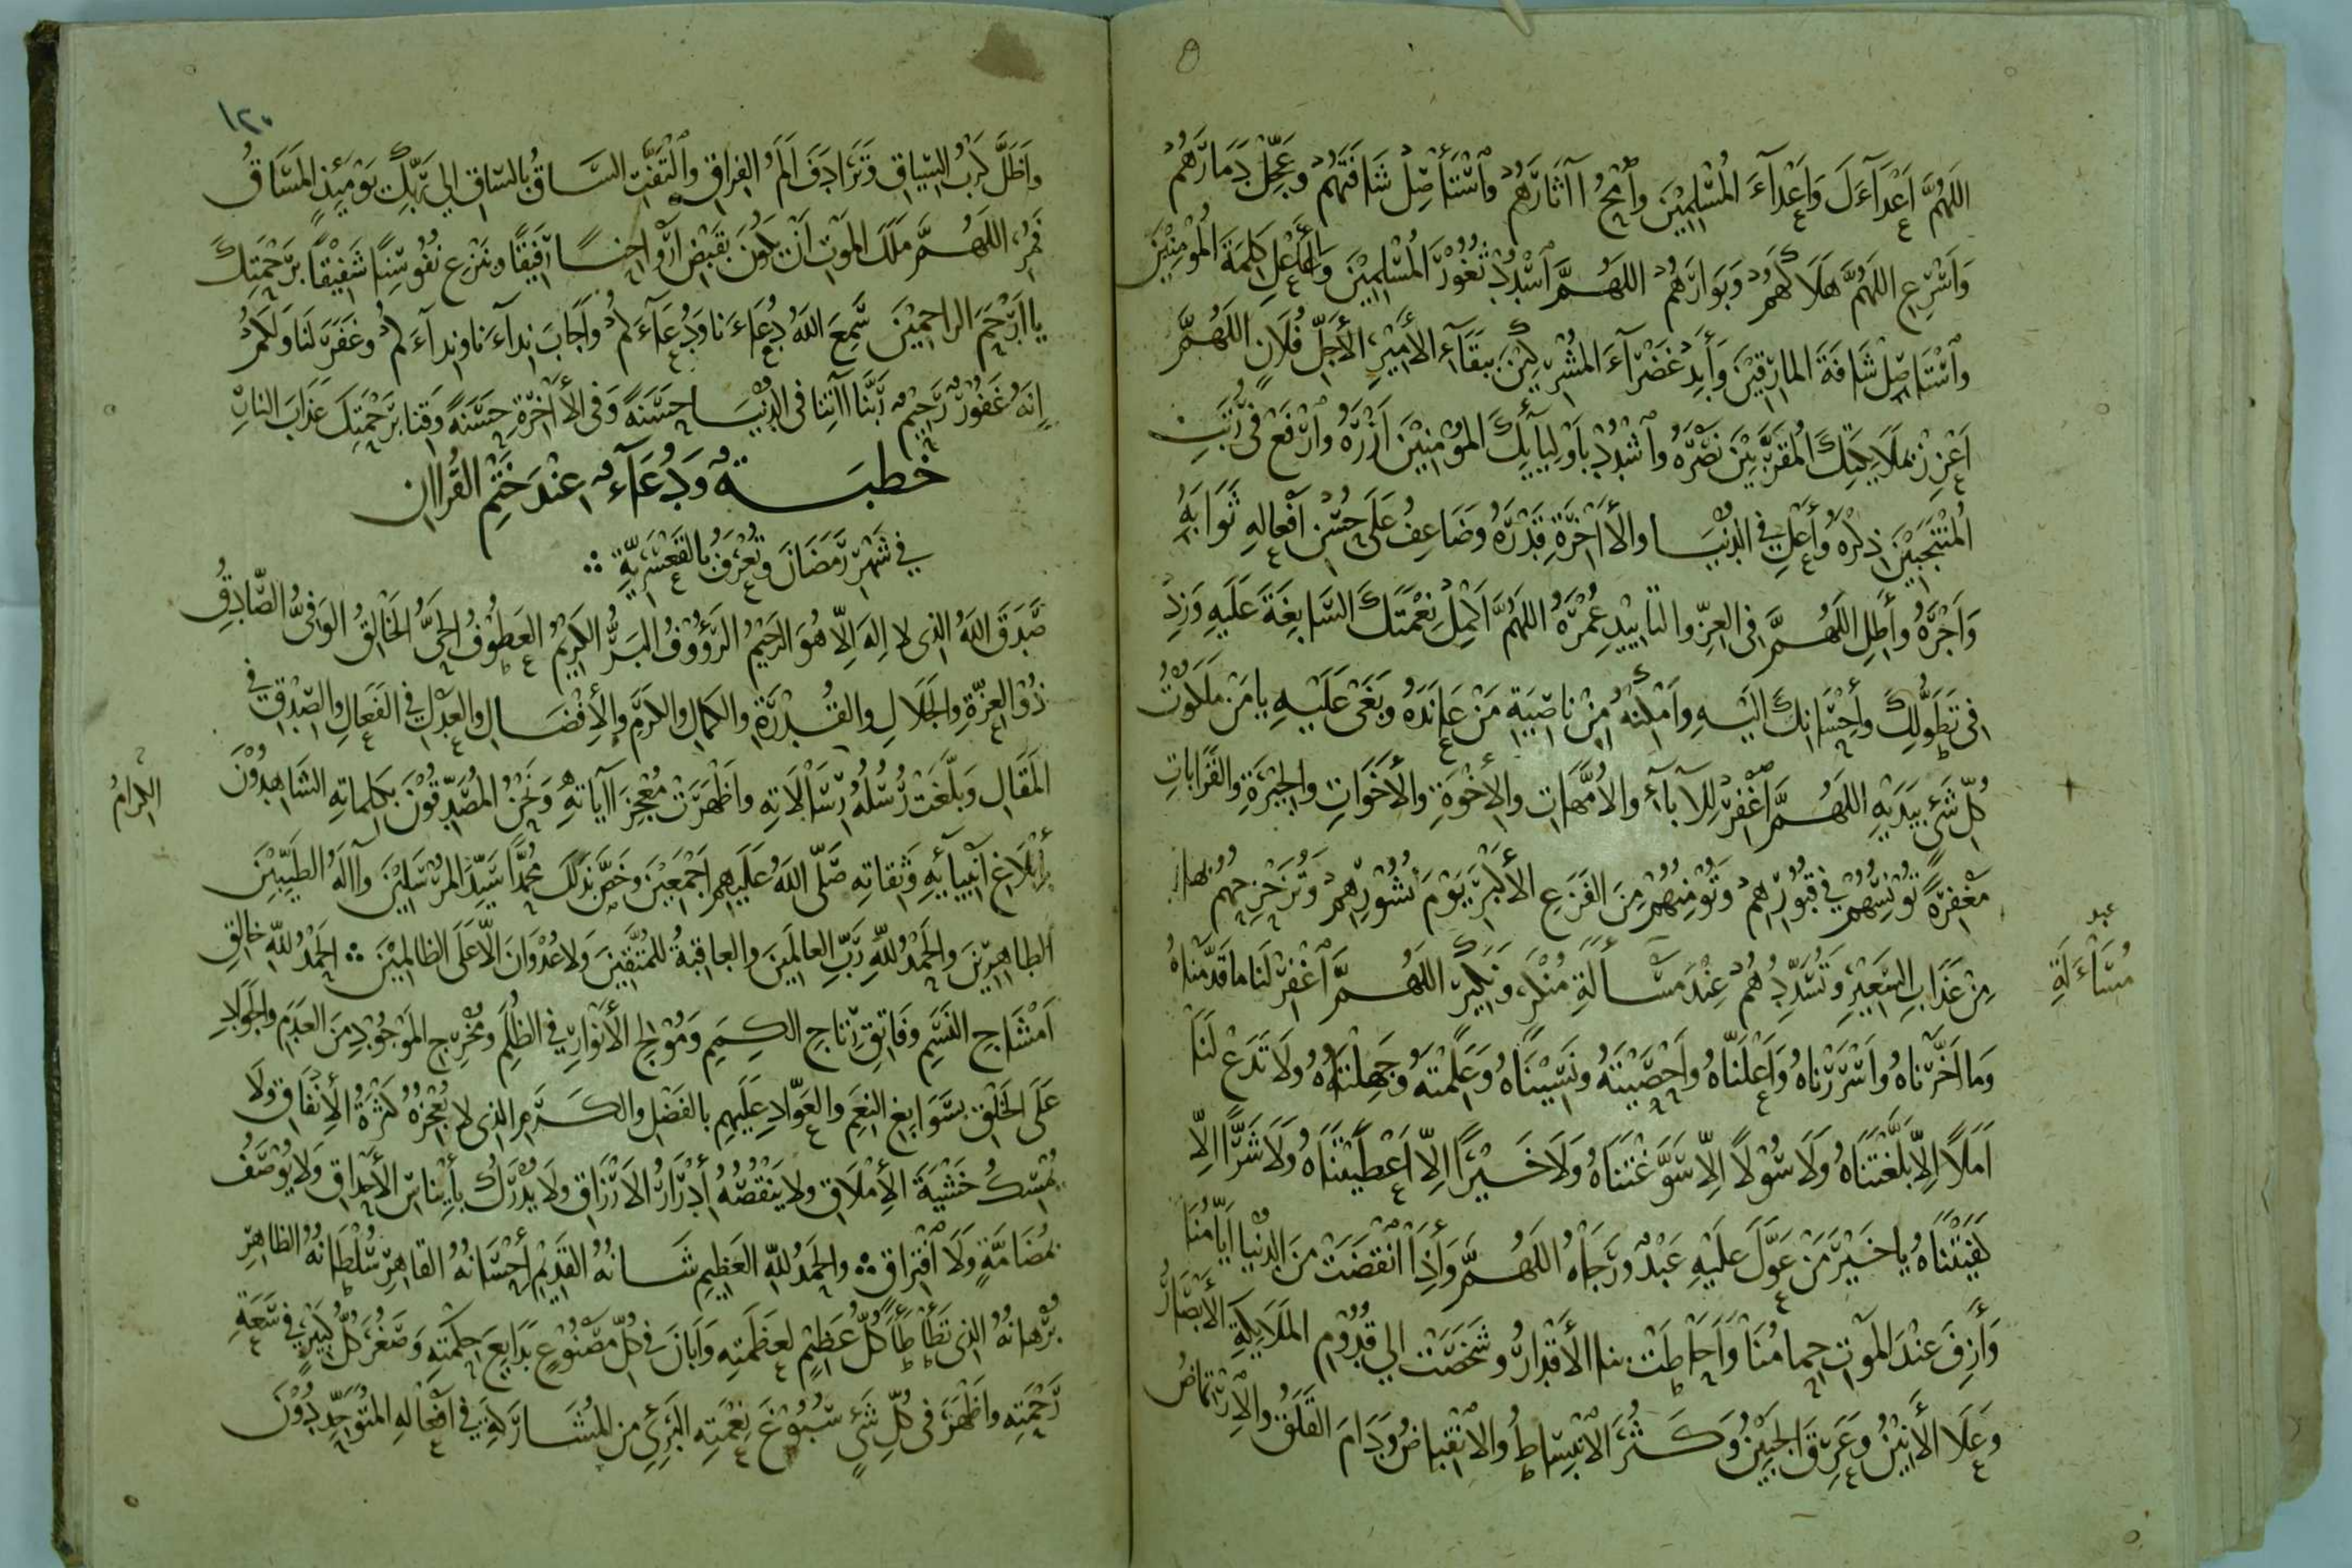 اللهُمَّ اَعْدَآءَكَ وَاَعْدَآءَ المُسْلِمِيْنَ وَامْحُ اآثَارَهُمْ وَاسْتَأْصِلْ شَافَتَهُمْ وَعَجِّلْ دَمَارَهُمْ
وَاَسْرِعِ اللهُمَّ هَلَاكَهُمْ وَبَوَارَهُمْ اللهُمَّ اسْدُدْ ثُغُوْرَ المُسْلِمِيْنَ وَاَعْلِ كَلِمَةَ المُؤْمِنِيْنَ
وَاسْتَاصِلْ شَافَةَ المَارِقِيْنَ وَأَبِدْ غَضْرَآءَ المُشْرِكِيْنَ بِبَقَآءِ الأَمِيْرِ الأَجَلِّ فُلَانٍ اللهُمَّ
اَعْزِزْ بِمَلَايِكَتِكَ المُقَرَّبِيْنَ نَصْرَهُ وَاشْدُدْ بِاَوْلِيَآئِكَ المُؤْمِنِيْنَ اَزْرَهُ وَارْفَعْ فِي رُتَبِ
المُنْتَجَبِيْنَ ذِكْرَهُ وَأَعْلِ فِي الدُّنْيَا وَالأَاخِرَةِ قَدْرَهُ وَضَاعِفْ عَلَى حُسْنِ أَفْعَالِهِ ثَوَابَهُ
وَاَجْرَهُ وَأَطِلِ اللهُمَّ فِي العِزِّ وَالتَّايِيْدِ عُمْرَهُ اللهُمَّ اَكْمِلْ نِعْمَتَكَ السَّابِغَةَ عَلَيهِ وَزِدْ
فِي تَطَوُّلِكَ وَأِحْسَانِكَ اليْهِ وَاَمْكِنْهُ مِنْ نَاصِيَةِ مَنْ عَانَدَهُ وَبَغَى عَلَيْهِ يَا مَنْ مَلَكُوْتُ
كُلِّ شَيْءٍ بِيَدَيْهِ اللهُمَّ اغْفِرْ لِلآبآءِ وَالأُمَّهَاتِ وَالأِخْوَةِ وَالأَخَوَاتِ وَالجِيْرَةِ وَالقَرَابَاتِ
مَغْفِرَةً تُوْنِسُهُمْ فِي قُبُوْرِهِمْ وَتُؤْمِنُهُمْ مِنَ الفَزَعِ الأَكْبَرِ يَوْمَ نُشُوْرِهِمْ وَتُزَحْزِحُهُمْ بِهَا
مِنْ عَذَابِ السَّعِيْرِ وَتُسَدِّدُهُمْ عِنْدَ مَسْأَلَةِ مُنْكَرٍ وَنَكِيْرٍ اللهُمَّ اغْفِرْ لَنَا مَا قَدَّمْنَاهُ
مُسَآءَلَةِ
وَمَا اَخَّرْنَاهُ وَاَسْرَرْنَاهُ وَاَعْلَنَّاهُ وَاَحْصَيْتَهُ وَنَسِيْنَاهُ وَعَلِمْتَهُ وَجَهِلْنَاهُ وَلَا تَدَعْ لَنَا
اَمَلاً اِلاّ بَلَّغْتَنَاهُ وَلَا سُوْلاً اِلاّ سَوَّغْتَنَاهُ وَلَا خَيْراً اِلاّ اَعْطَيْتَنَاهُ وَلَا شَرّاً اِلاّ
كَفَيْتَنَاهُ يَا خَيْرَ مَنْ عَوَّلَ عَلَيْهِ عَبْدٌ وَرَجَاهُ اللهُمَّ وَأِذَا انْقَضَتْ مِنَ الدُّنْيَا اَيَّامُنَا
وَأَزِفَ عِنْدَ المَوْتِ حِمَامُنَا وَاَحَاطَتْ بِنَا الأَقْدَارُ وَشَخَصَتْ الي قُدُوْمِ المَلَايِكَةِ الأَبْصَارُ
وَعَلَا الأَنِيْنُ وَعَرِقَ الجَبِيْنُ وَكَثُرَ الاِنْبِسَاطُ وَالاِنْقِبَاضُ وَدَامَ القَلَقُ وَالاِرْتِمَاضُ
١٢٠
وَاَظَلَّ كَرْبُ السِّيَاقِ وَتَرَادَفَ اَلَمُ الفِرَاقِ وَالْتَفَّتِ السَّاقُ بِالسَّاقِ الي رَبِّكَ يَوْمَئِذٍ المَسَاقُ
فَمُرِ اللهُمَّ مَلَكَ المَوْتِ اَنْ يَكُوْنَ بِقَبْضِ اَرْوَاحِنَا رَفِيْقًا وَبِنَزْعِ نُفُوْسِنَا شَفِيْقًا بِرَحْمَتِكَ
يَا اَرْحَمَ الرَّاحِمِيْنَ سَمِعَ اللهُ دُعَاءَنَا وَدُعَآءَكُمْ وَاَجَابَ نِدَآءَنَا وَنِدَآءَكُمْ وَغَفَرَ لَنَا وَلَكُمْ
اِنَّهُ غَفُوْرٌ رَحِيْمٌ رَبَّنَا اآتِنَا فِي الدُّنْيَا حَسَنَةً وَفِي الأَاخِرَةِ حَسَنَةً وَقِنَا بِرَحْمَتِكَ عَذَابَ النَّارِ
خُطْبَةٌ وَدُعَآءٌ عِنْدَ خَتْمِ القُرْاانِ
فِي شَهْرِ رَمَضَانَ وَتُعْرَفُ بِالقَعْسَرِيَّةِ
صَدَقَ اللهُ الذِي لا اِلَهَ اِلّا هُوَ الرَحِيْمُ الرَؤُوْفُ البَرُّ الكَرِيْمُ العَطُوْفُ الحَيُّ الخَالِقُ الوَفِيُّ الصَّادِقُ
ذُوْ العِزَّةِ وَالجَلَالِ وَالقُدْرَةِ وَالكَمَالِ وَالكَرَمِ وَالأِفْضَالِ وَالعَدْلِ فِي الفَعَالِ وَالصِّدْقِ فِي
المَقَالِ وَبَلَّغَتْ رُسُلُهُ رِسَالَاتِهِ وَاَظْهَرَتْ مُعْجِزَ اآيَاتِهِ وَنَحْنُ المُصَدِّقُوْنَ بِكَلِمَاتِهِ الشَاهِدُوْنَ
الكِرَامُ
بِأِبْلَاغِ اَنْبِيَآئِهِ وَثِقَاتِهِ صَلَّى اللهُ عَلَيْهِمْ اَجْمَعِيْنَ وَخَصَّ بِذَلِكَ مُحَمَّدًا سَيِّدَ المُرْسَلِيْنَ وَاآلَهُ الطَيِّبِيْنَ
الطَاهِرِيْنَ وَالحَمْدُ للهِ رَبِّ العَالَمِيْنَ وَالعَاقِبَةُ للمُتَّقِيْنَ وَلَا عُدْوَانَ اِلاّ عَلَى الظَالِمِيْنَ ∴ الحَمْدُ للهِ خَالِقِ
اَمْشَاجِ النَّسَمِ وَفَاتِقِ رِتَاجِ البِهَمِ وَمُوْلِجِ الأَنْوَارِ فِي الظُلَمِ وَمُخْرِجِ المَوْجُوْدِ مِنَ العَدَمِ وَالجَوَادِ
عَلَى الخَلْقِ بِسَوَابِغِ النِعَمِ وَالعَوَّادِ عَلَيْهِمِ بِالفَضْلِ وَالكَرَمِ الذِي لَا يُعْجِزُهُ كَثْرَةُ الأِنْفَاقِ وَلَا
يُمْسِكُ خَشْيَةَ الأِمْلَاقِ وَلَا يَنْقُصُهُ أِدْرَارُ الاَرْزَاقِ وَلَا يُدْرَكُ بِأَنَاسِيِّ الأَحْدَاقِ وَلَا يُوْصَفُ
بِمُضَامَّةٍ وَلَا افْتِرَاقٍ ∴ وَالحَمْدُ للهِ العَظِيْمِ شَانُهُ القَدِيْمِ أِحْسَانُهُ القَاهِرِ سُلْطَانُهُ الظَاهِرِ
بُرْهَانُهُ الذِي تَطَأْطَأَ كُلُّ عَظِيْمٍ لِعَظَمَتِهِ وَاَبَانَ فِي كُلِّ مَصْنُوْعٍ بَدَايِعَ حِكْمَتِهِ وَصَغُرَ كُلُّ كَبِيْرٍ فِي سَعَةِ
رَحْمَتِهِ وَاَظْهَرَ فِي كُلِّ شَيْءٍ سُبُوْغَ نِعْمَتِهِ البَرِيْءِ مِنَ المُشَارَكَةِ فِي اَفْعَالِهِ المُتَوَحِّدِ دُوْنَ